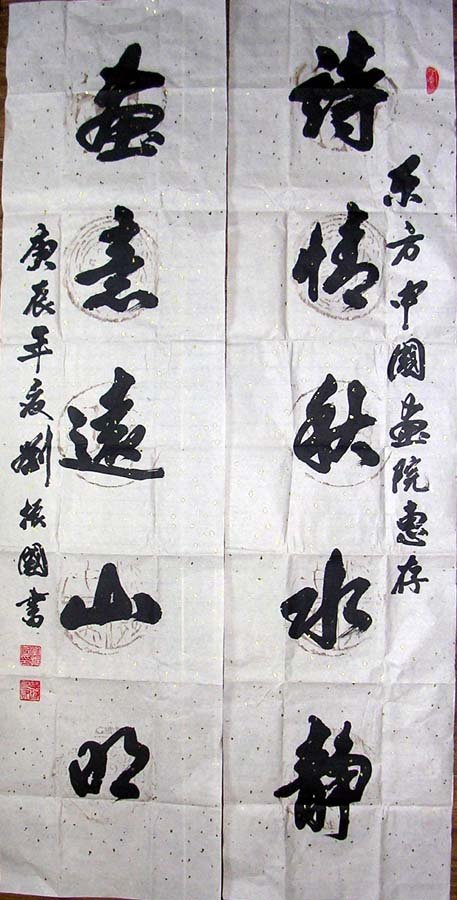 东方中國畫院惠存
詩情秋水静
畫意遠山明
庚辰年夏劉振國書